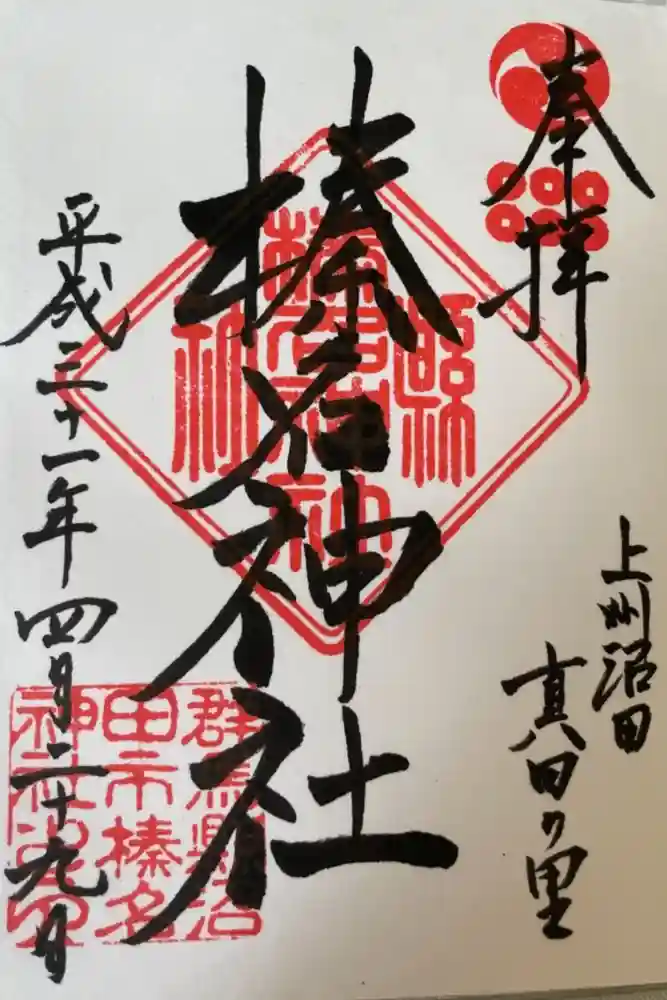 奉拝
上州沼田
真田の里
縣
榛名神
社
榛名神社
群馬縣沼
田市榛名
神社
平成三十一年四月二十九日